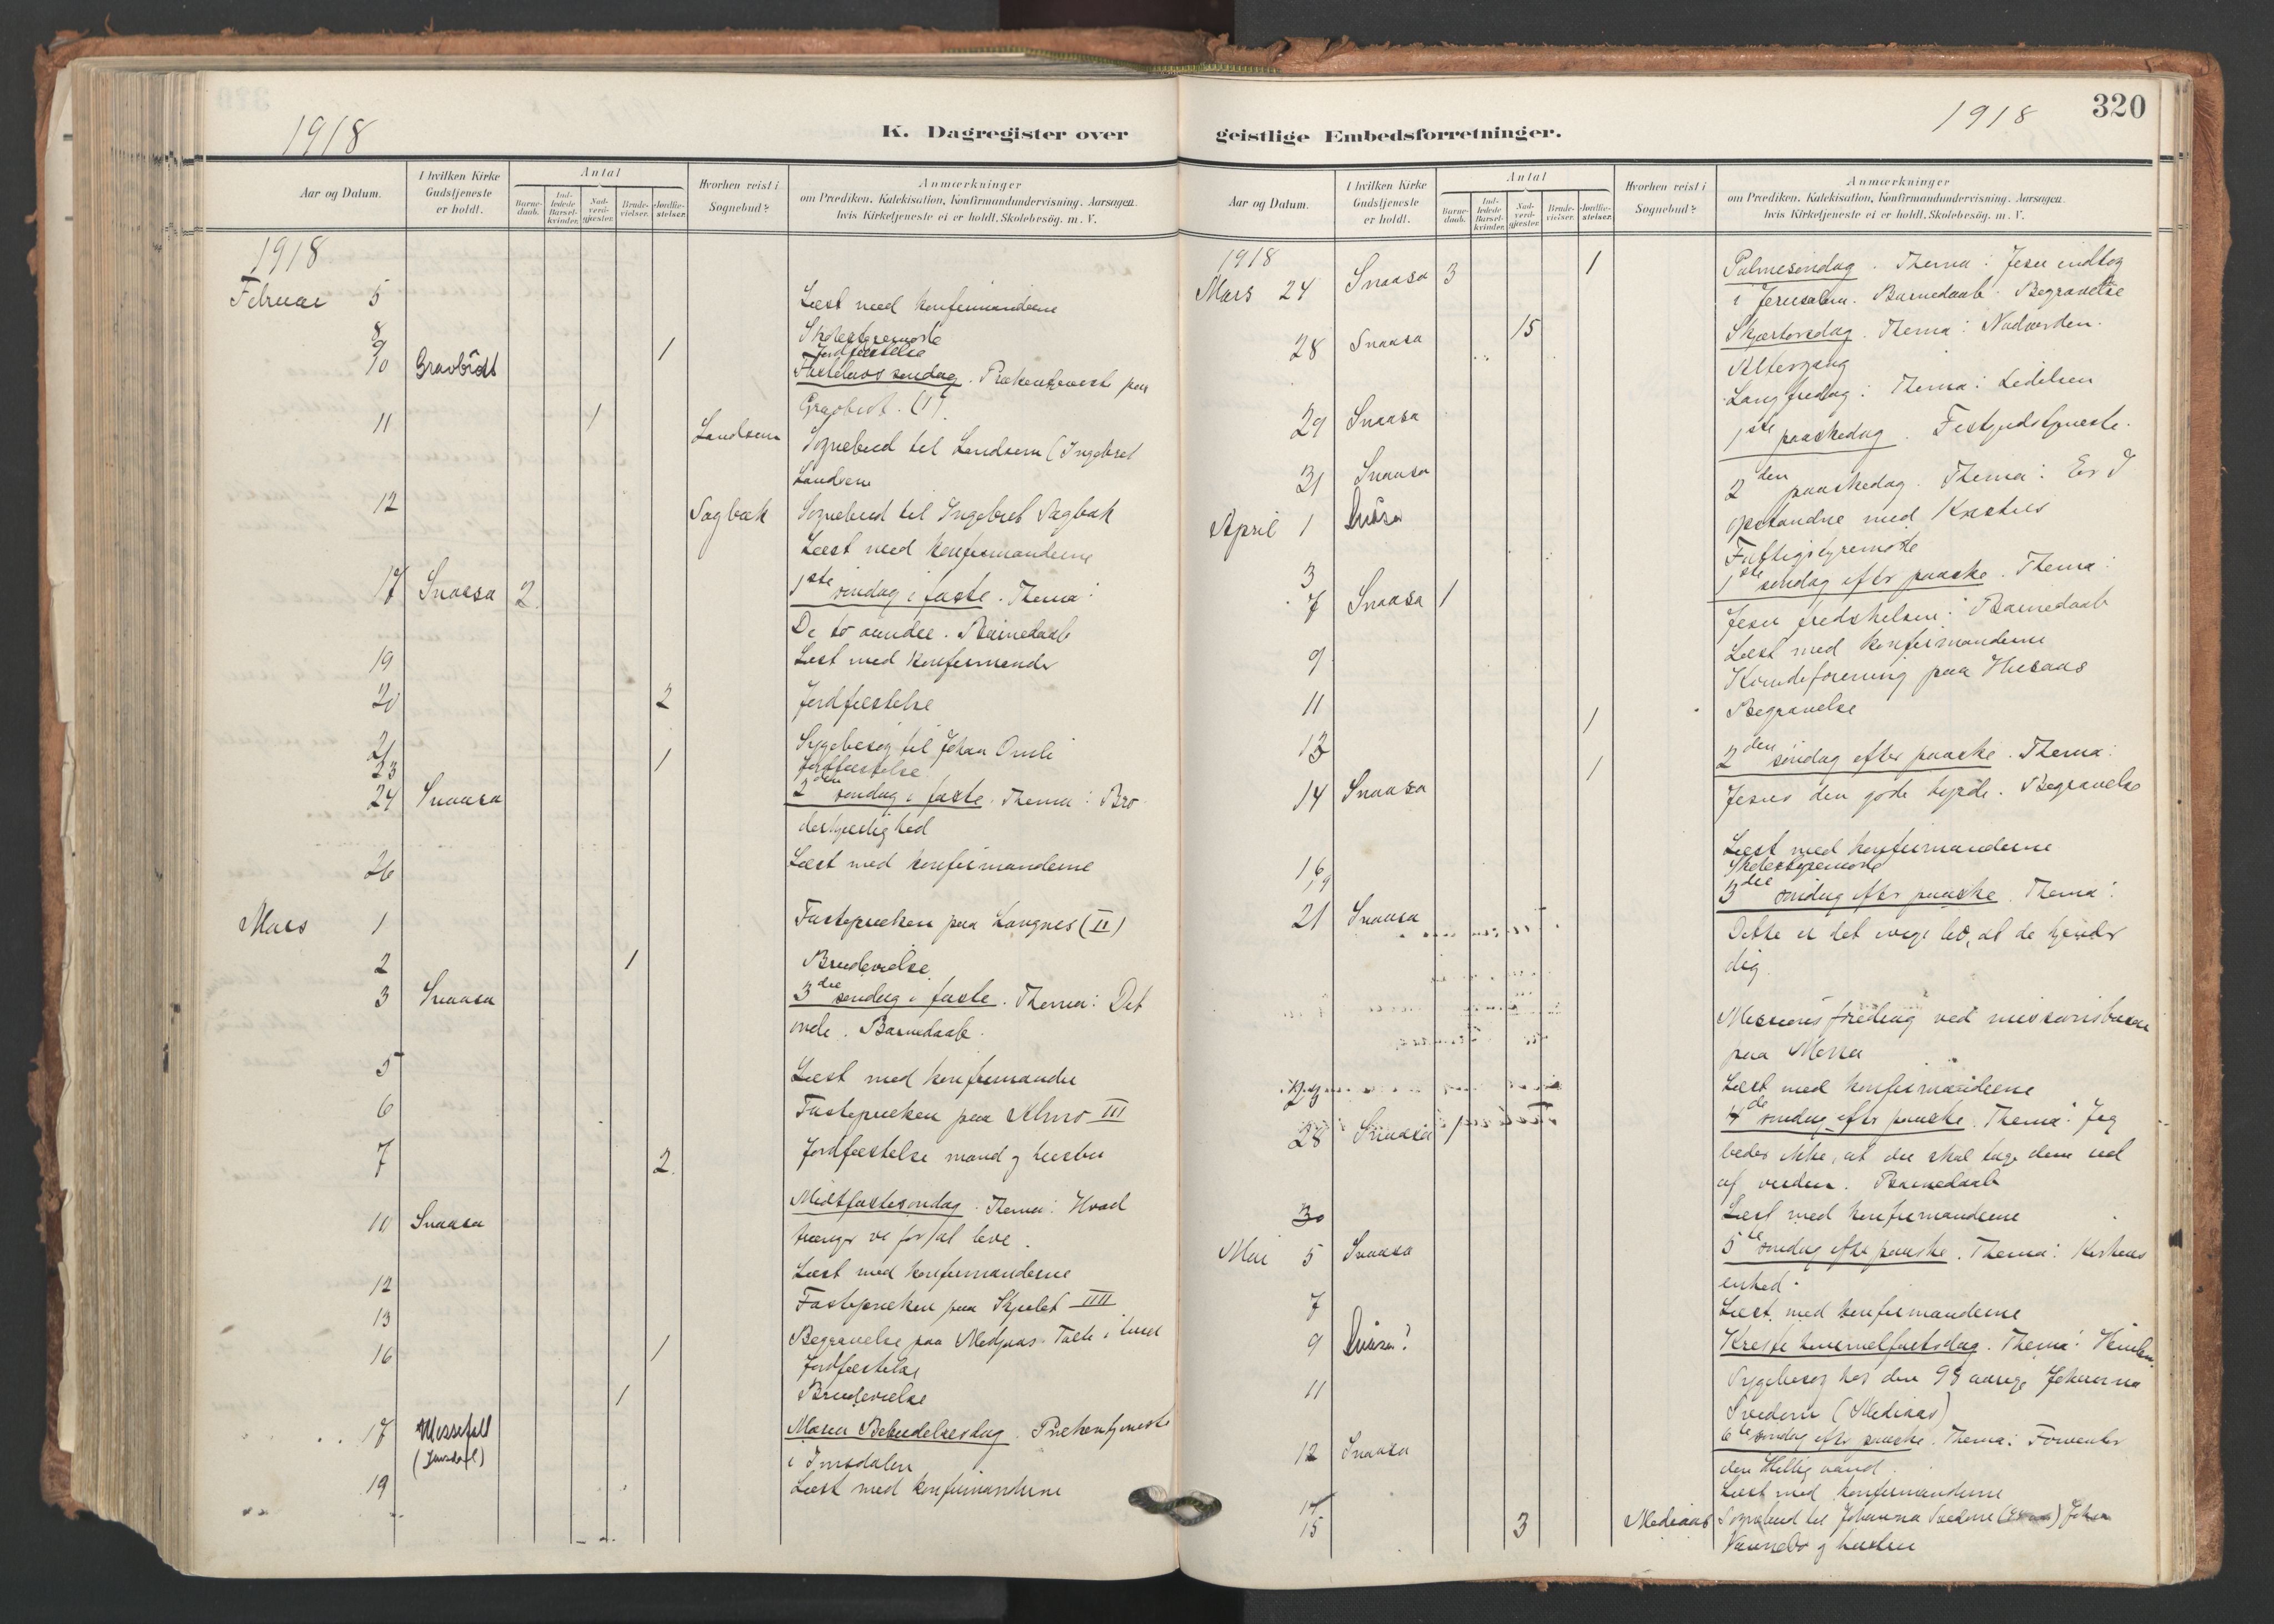 1918
K. Dagregister over
Aar og Datum.
I hvilken Kirke Gudstjeneste er holdt.
Antal
Barne-daab.
Ind-ledede Barsel-kvinder.
Nad-verd-gjester.
Brude-vielser.
Jordfæ-stelser.
Hvorhen reist i Sognebud?
Anmærkninger
om Prædiken, Katekisation, Konfirmandundervisning, Aarsagen,
hvis Kirketjeneste ei er holdt, Skolebesög, m. V.
1918
Februar 5 Læst med konfirmanderne
8 Skolestyremøte
9 1 Jordfæstelse
10 Gravbrøt Fastelavns søndag. Prækentjeneste paa
Gravbrøt. (I)
11 1 Landsem Sognebud til Landsem (Ingebret
Landsem
12 Sagbak Sognebud til Ingebret Sagbak
Læst med konfirmanderne
17 Snaasa 2 1ste søndag i faste. Thema:
De to aander. Barnedaab
19 Læst med konfirmander
20 2 Jordfæstelse
21 Sygebesøg til Johan Omli
23 1 Jordfæstelse
24 Snaasa 2den søndag i faste. Thema: Bro
derkjærlighed
26 Læst med konfirmanderne
Mars 1 Fastepræken paa Langnes (II)
2 1 Brudevielse
3 Snaasa 3die søndag i faste. Thema: Det
onde. Barnedaab.
5 Læst med konfirmander
6 Fastepræken paa Almo III
7 2 Jordfæstelse mand og hustru
10 Snaasa Midtfastesøndag. Thema: Hvad
trænger vi for at leve.
12 Læst med konfirmanderne
13 Fastepræken paa Skjelet IIII
16 1 Begravelse paa Medjaas. Tale i
Jordfæstelse
1 Brudevielse
17 Messefall Marias Bebudelsesdag. Prækentjeneste
(Imsdal) i Imsdalen
19 Læst med konfirmanderne
320
1918
geistlige Embedsforretninger.
Aar og Datum.
I hvilken Kirke Gudstjeneste er holdt.
Antal
Barne-daab.
Ind-ledede Barsel-kvinder.
Nad-verd-gjester.
Brude-vielser.
Jordfæ-stelser.
Hvorhen reist i Sognebud?
Anmærkninger
om Prædiken, Katekisation, Konfirmandundervisning, Aarsagen,
hvis Kirketjeneste ei er holdt, Skolebesög, m. V.
1918
Mars 24 Snaasa 3 1 Palmesøndag. Thema: Jesu indtog
i Jerusalem. Barnedaab. Begravelse
28 Snaasa 15 Skjærtorsdag. Thema: Nadverden.
Altergang
29 Snaasa Langfredag: Thema: Lidelsen
31 Snaasa 1ste paaskedag. Festgudstjeneste.
April 1 2den paaskedag. Thema: Er I
opstandne med Kristus
3 Fattigstyremøte
7 Snaasa 1 1ste søndag efter paaske. Thema:
Jesu fredshilsen. Barnedaab
9 Læst med konfirmanderne
11 Kvindeforening paa Husaas
13 1 Begravelse
14 Snaasa 1 2den søndag efter paaske. Thema:
Jesus den gode hyrde. Begravelse
16 Læst med konfirmanderne
19 Skolestyremøte
21 Snaasa 3die søndag efter paaske. Thema:
Dette er det evige liv, at de kjender
dig.
Missionsforedrag ved missionsbasar
paa Mona
Læst med konfirmanderne
28 Snaasa 1 4de søndag efter paaske. Thema: Jeg
beder ikke, at du skal tage dem ud
af verden. Barnedaab
30 Læst med konfirmanderne
Mai 5 Snaasa 5te søndag efter paaske. Thema: Kirkens
enhed.
7 Læst med konfirmanderne
9 Kristi himmelfartsdag. Thema: Himlen.
11 Sygebesøg hos den 98 aarige Johanna
(Mediaas)
12 Snaasa 6te søndag efter paaske. Thema: Forventer
den Hellig aand.
14 Læst med konfirmanderne
15 3 Mediaas Sognebud til Johanna Johan
og hustru